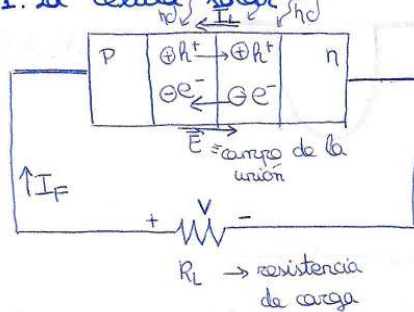 1. La célula solar
hυ I_L hυ
P ⊕h⁺ → ⊕h⁺ n
⊖e⁻ ← ⊖e⁻
E⃗ = campo de la
unión
↑I_F
+ V -
R_L → resistencia
de carga